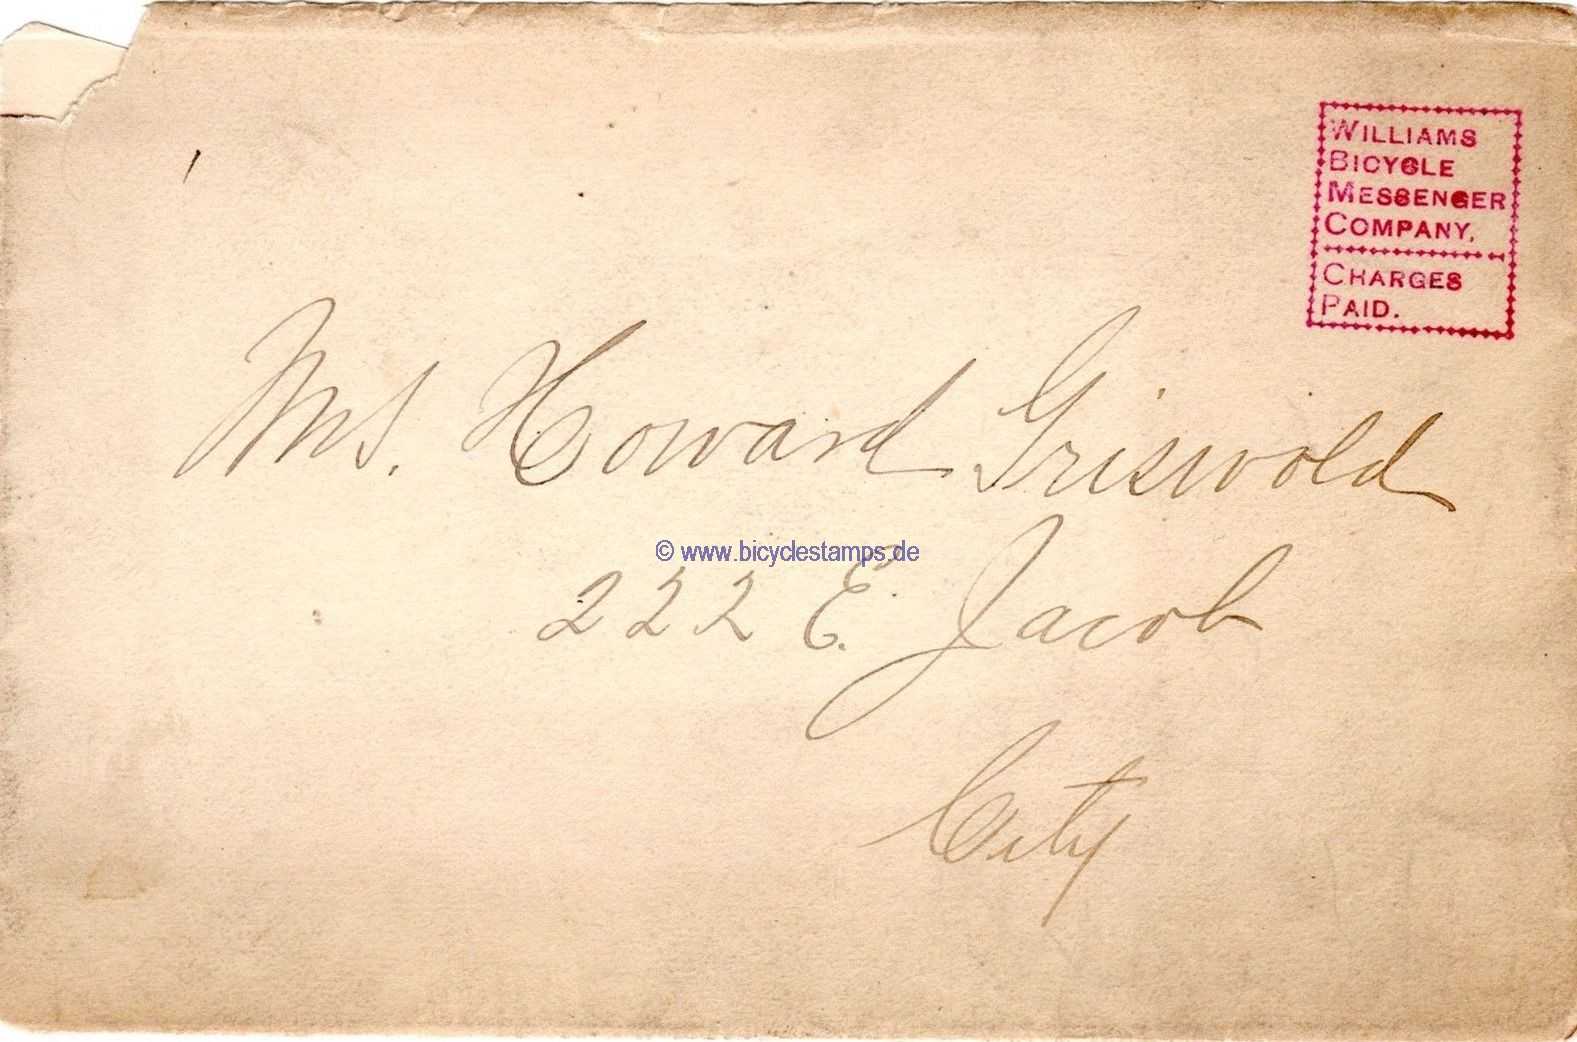 WILLIAMS
BICYCLE
MESSENGER
COMPANY.
CHARGES
PAID.
Mrs. Howard Griswold
© www.bicyclestamps.de
222 E. Jacob
City